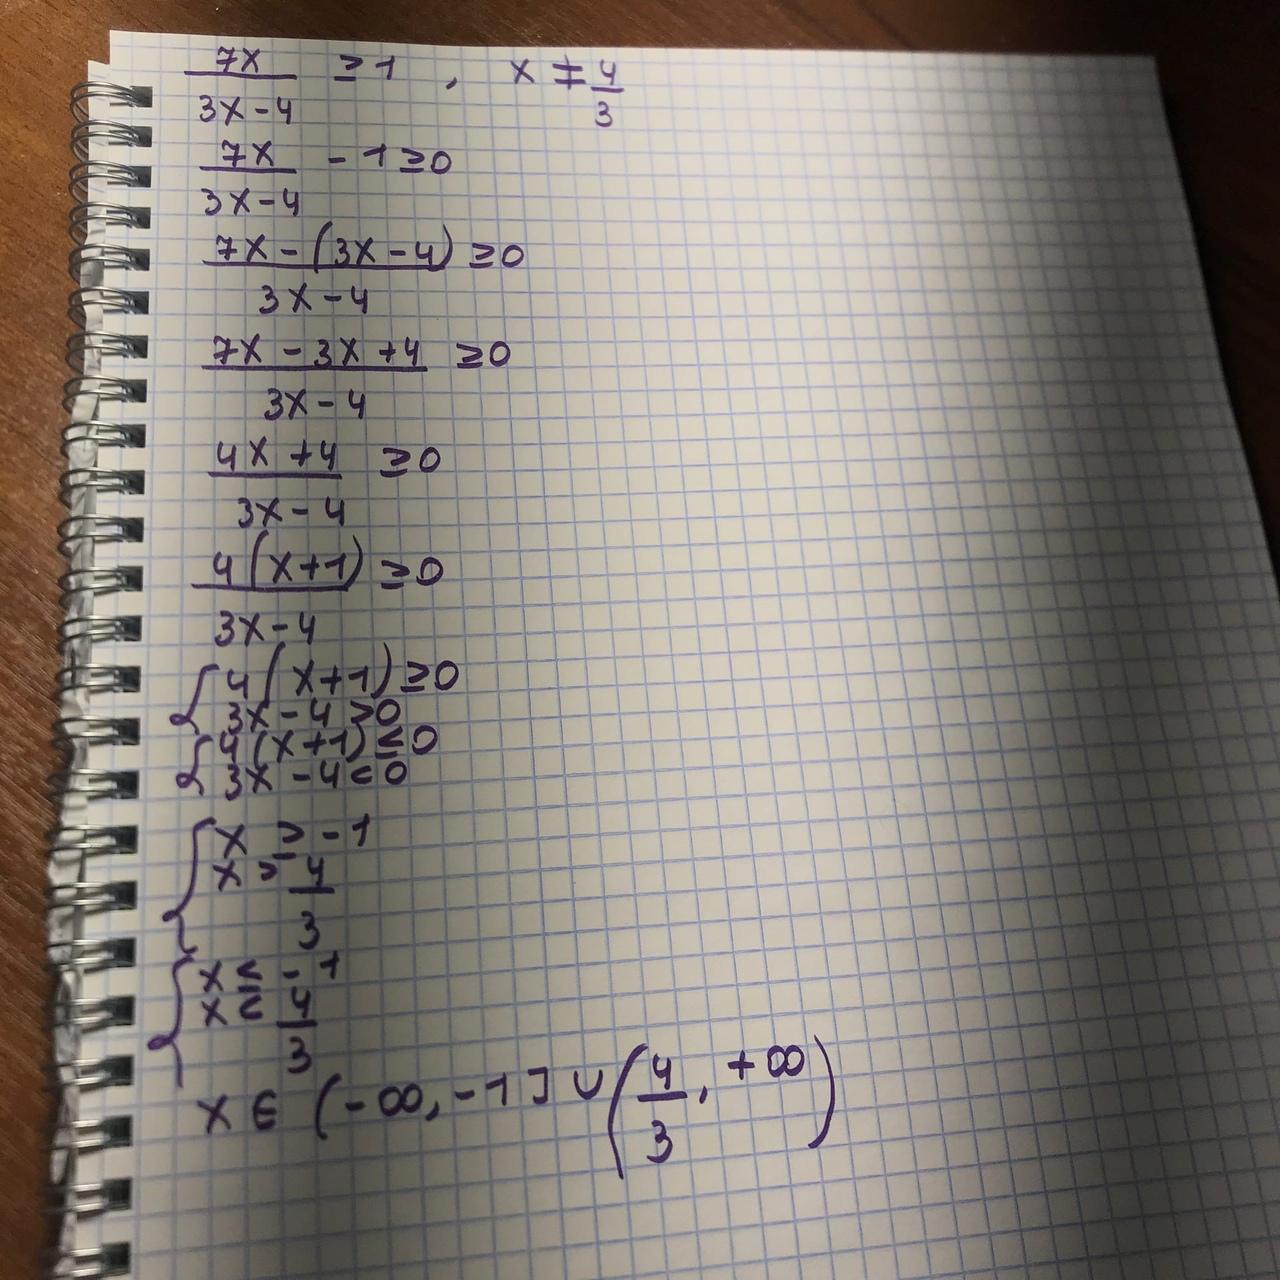 7x/(3x-4) ≥1 , x ≠ 4/3
7x/(3x-4) -1≥0
(7x-(3x-4))/(3x-4) ≥0
(7x-3x+4)/(3x-4) ≥0
(4x+4)/(3x-4) ≥0
4(x+1)/(3x-4) ≥0
{ 4(x+1)≥0
3x-4>0
{ 4(x+1)≤0
3x-4<0
{ x ≥ -1
x > 4/3
{ x ≤ -1
x < 4/3
x ∈ (-∞, -1] ∪ (4/3, +∞)